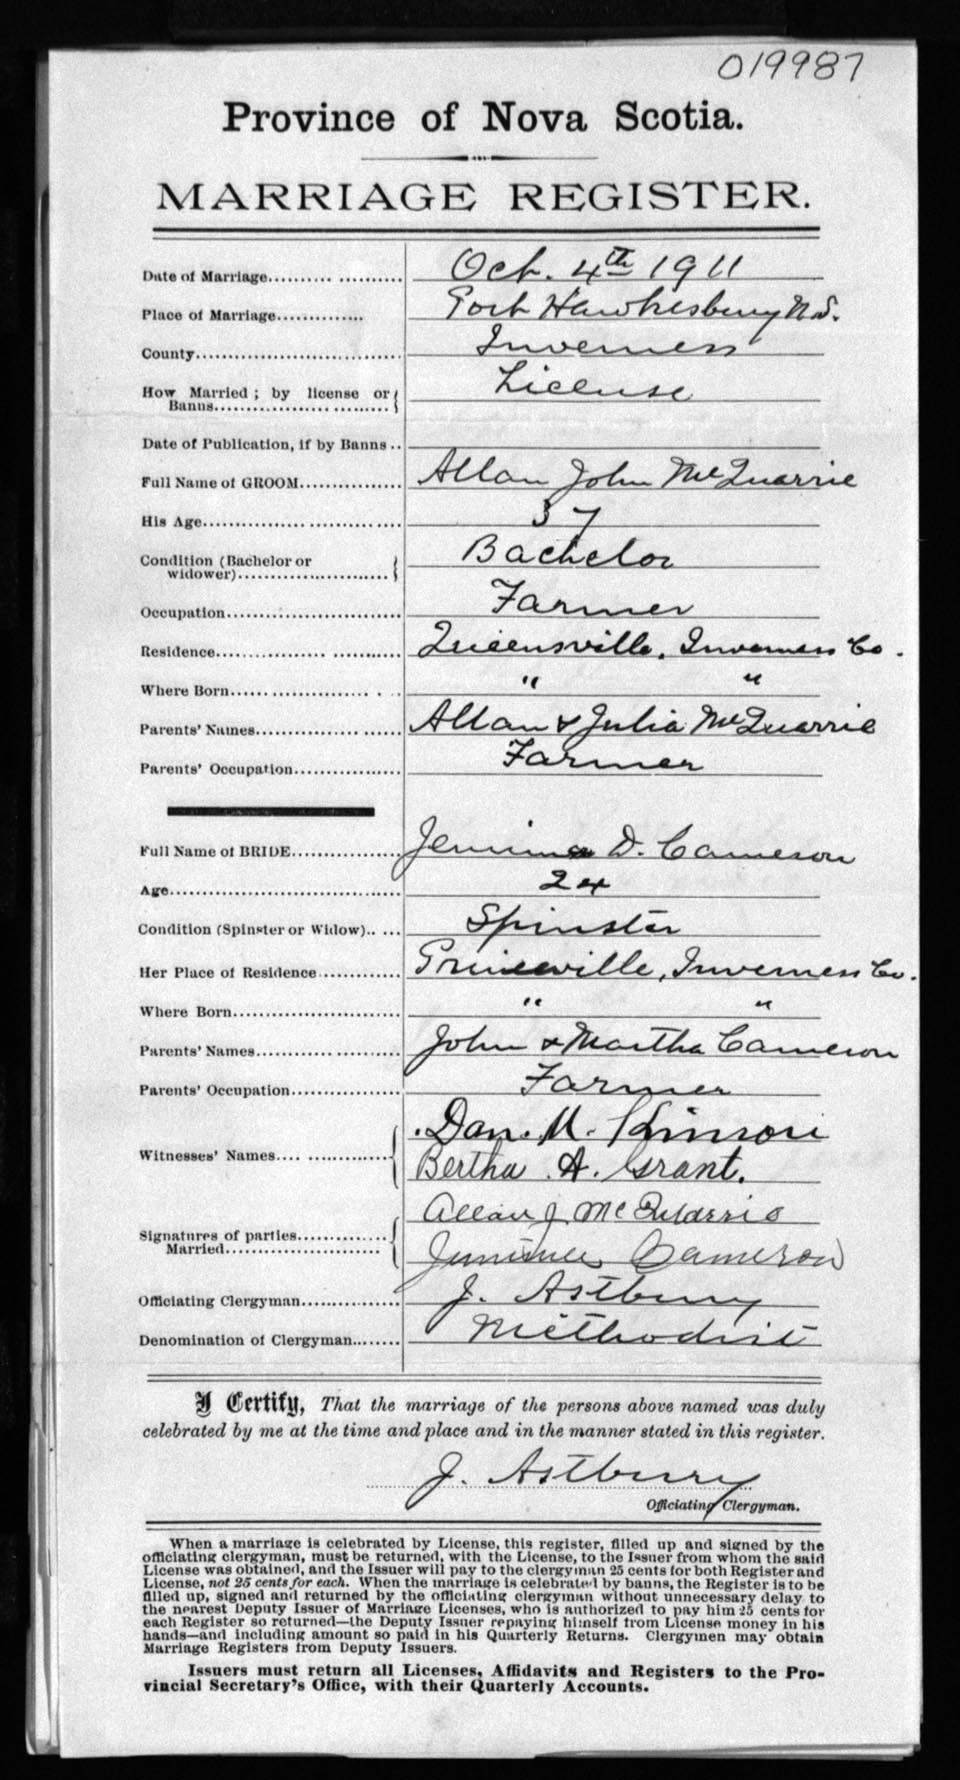 019987
Province of Nova Scotia.
MARRIAGE REGISTER.
Date of Marriage.......... Oct. 4th 1911
Place of Marriage............. Port Hawkesbury N.S.
County.............................. Inverness
How Married ; by license or License
Banns..............................
Date of Publication, if by Banns ..
Full Name of GROOM............... Allan John McQuarrie
His Age............................. 37
Condition (Bachelor or Bachelor
widower)......................
Occupation.......................... Farmer
Residence........................... Queensville, Inverness Co.
Where Born...................... " "
Parents' Names..................... Allan & Julia McQuarrie
Parents' Occupation................ Farmer
Full Name of BRIDE............... Jemima D. Cameron
Age.................................. 24
Condition (Spinster or Widow)..... Spinster
Her Place of Residence............ Princeville, Inverness Co.
Where Born......................... " "
Parents' Names..................... John & Martha Cameron
Parents' Occupation................ Farmer
Dan. M.
Witnesses' Names.................. Bertha A. Grant.
Allan J. McQuarrie
Signatures of parties.............
Married...................... Cameron
Officiating Clergyman............. J. Astbury
Denomination of Clergyman....... Methodist
I Certify, That the marriage of the persons above named was duly
celebrated by me at the time and place and in the manner stated in this register.
J. Astbury
Officiating Clergyman.
When a marriage is celebrated by License, this register, filled up and signed by the
officiating clergyman, must be returned, with the License, to the Issuer from whom the said
License was obtained, and the Issuer will pay to the clergyman 25 cents for both Register and
License, not 25 cents for each. When the marriage is celebrated by banns, the Register is to be
filled up, signed and returned by the officiating clergyman without unnecessary delay to
the nearest Deputy Issuer of Marriage Licenses, who is authorized to pay him 25 cents for
each Register so returned—the Deputy Issuer repaying himself from License money in his
hands—and including amount so paid in his Quarterly Returns. Clergymen may obtain
Marriage Registers from Deputy Issuers.
Issuers must return all Licenses, Affidavits and Registers to the Pro-
vincial Secretary's Office, with their Quarterly Accounts.